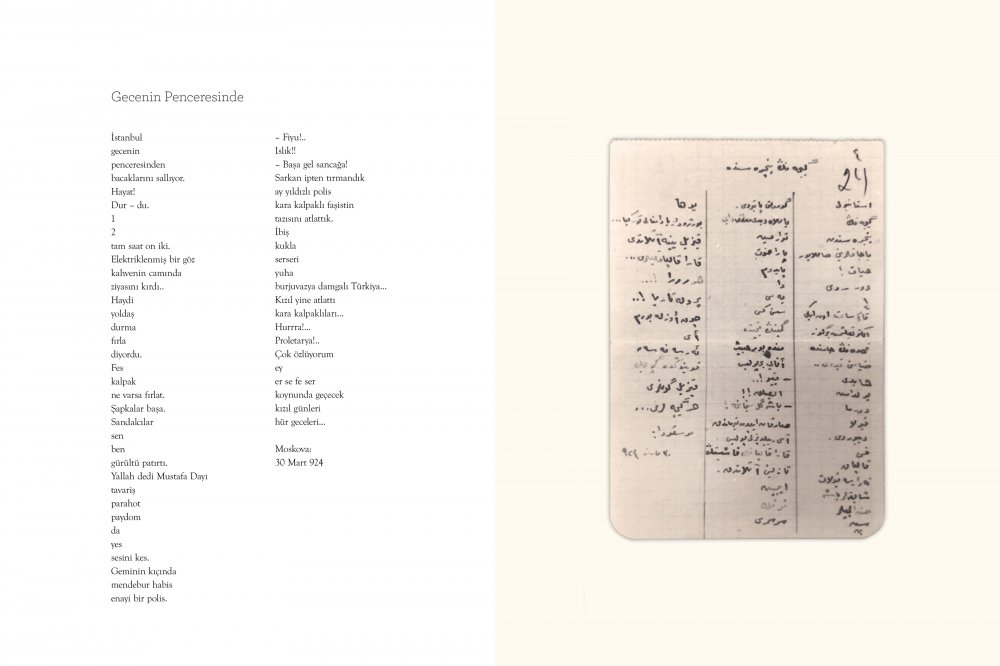 Gecenin Penceresinde
İstanbul
gecenin
penceresinden
bacaklarını sallıyor.
Hayat!
Dur – du.
1
2
tam saat on iki.
Elektriklenmiş bir göz
kahvenin camında
ziyasını kırdı..
Haydi
yoldaş
durma
fırla
diyordu.
Fes
kalpak
ne varsa fırlat.
Şapkalar başa.
Sandalcılar
sen
ben
gürültü patırtı.
Yallah dedi Mustafa Dayı
tavariş
parahot
paydom
da
yes
sesini kes.
Geminin kıçında
mendebur habis
enayi bir polis.
– Fiyu!..
Islık!!
– Başa gel sancağa!
Sarkan ipten tırmandık
ay yıldızlı polis
kara kalpaklı faşistin
tazısını atlattık.
İbiş
kukla
serseri
yuha
burjuvazya damgalı Türkiya...
Kızıl yine atlattı
kara kalpaklıları...
Hurrra!...
Proletarya!..
Çok özlüyorum
ey
er se fe ser
koynunda geçecek
kızıl günleri
hür geceleri...
Moskova:
30 Mart 924
24
گیجه نڭ پنجره سنده
استانبول
گیجه نڭ
پنجره سندن
حیات !
هایدی
یولداش
دورما
فیرلا
دییوردی.
فس
قالپاق
سن
تواریش
پاراخوت
پایدوم
دا
یه س
سسڭی کس
- فیو !..
ایبیش
سرسری
یوها
ای
موسقووا: